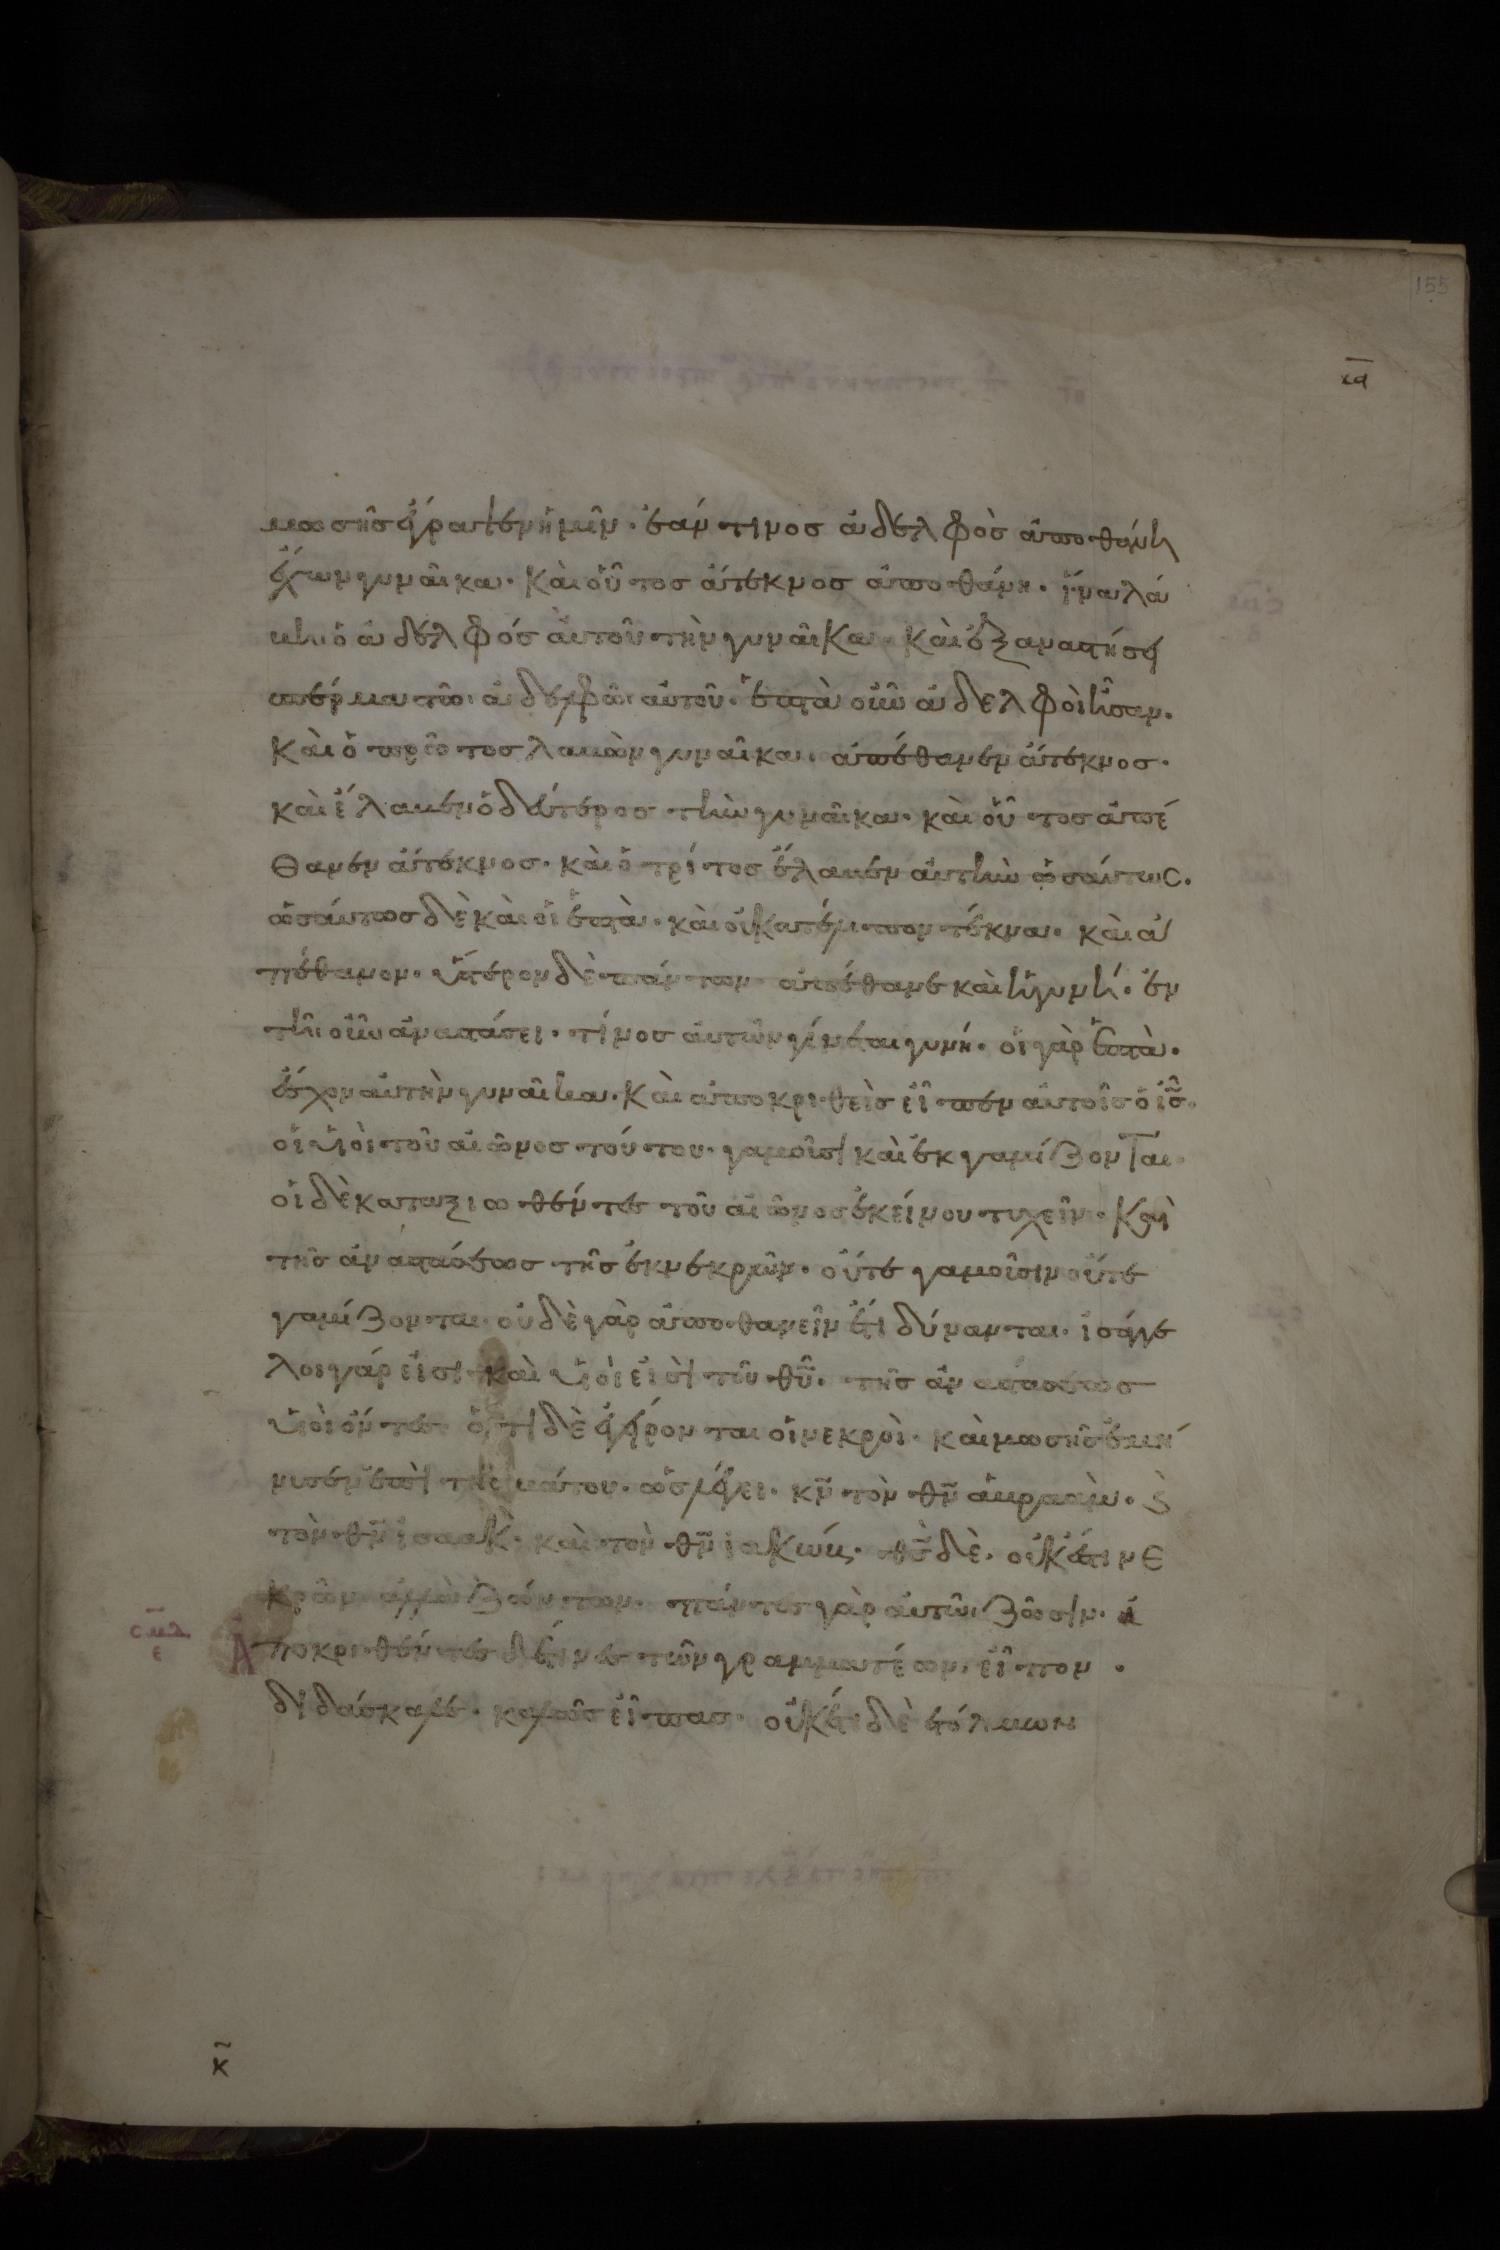 155
κα
μωσῆς ἔγραψεν ἡμῖν· ἐάν τινος ἀδελφὸς ἀποθάνη
ἔχων γυναῖκα· καὶ οὗτος ἄτεκνος ἀποθάνη· ἵνα λά
βη ὁ ἀδελφός αὐτοῦ τὴν γυναῖκα· καὶ ἐξαναστήσει
σπέρμα τῶ ἀδελφῶ αὐτοῦ· ἑπτὰ οὖν ἀδελφοὶ ἦσαν·
καὶ ὁ πρῶτος λαβὼν γυναῖκα· ἀπέθανεν ἄτεκνος·
καὶ ἔλαβεν ὁ δεύτερος τὴν γυναῖκα· καὶ οὗτος ἀπέ
θανεν ἄτεκνος· καὶ ὁ τρίτος ἔλαβεν αὐτὴν ὡσαύτως·
ὡσαύτως δὲ καὶ οἱ ἑπτὰ· καὶ οὐ κατέλιπον τέκνα· καὶ ἀ
πέθανον· ὕστερον δὲ πάντων ἀπέθανε καὶ ἡ γυνή· ἐν
τῆ οὖν ἀναστάσει· τίνος αὐτῶν γίνεται γυνή· οἱ γὰρ ἑπτὰ·
ἔσχον αὐτὴν γυναῖκα· καὶ ἀποκριθεὶς εἶπεν αὐτοῖς ὁ ις·
οἱ υἱοὶ τοῦ αἰῶνος τούτου· γαμοῦσι καὶ ἐκγαμίζονται·
οἱ δὲ καταξιωθέντες τοῦ αἰῶνος ἐκείνου τυχεῖν· καὶ
τῆς ἀναστάσεως τῆς ἐκ νεκρῶν· οὔτε γαμοῦσιν οὔτε
γαμίζονται· οὐδὲ γὰρ ἀποθανεῖν ἔτι δύνανται· ἰσάγγε
λοι γάρ εἰσι· καὶ υἱοὶ εἰσὶ τοῦ θυ· τῆς ἀναστάσεως
υἱοὶ ὄντες· ὅτι δὲ ἐγείρονται οἱ νεκροὶ· καὶ μωσῆς ἐμή
νυσεν ἐπὶ τῆς βάτου· ὡς λέγει· κν τὸν θν ἀβραὰμ· ϗ
τὸν θν ἰσαακ· καὶ τὸν θν ἰακώβ· θς δὲ· οὐκ ἔστι νε
κρῶν ἀλλὰ ζώντων· πάντες γὰρ αὐτῶ ζῶσιν· ἀ
Αποκριθέντες δέ τινες τῶν γραμματέων· εἶπον·
διδάσκαλε· καλῶς εἶπας· οὐκέτι δὲ ἐτόλμων
κ